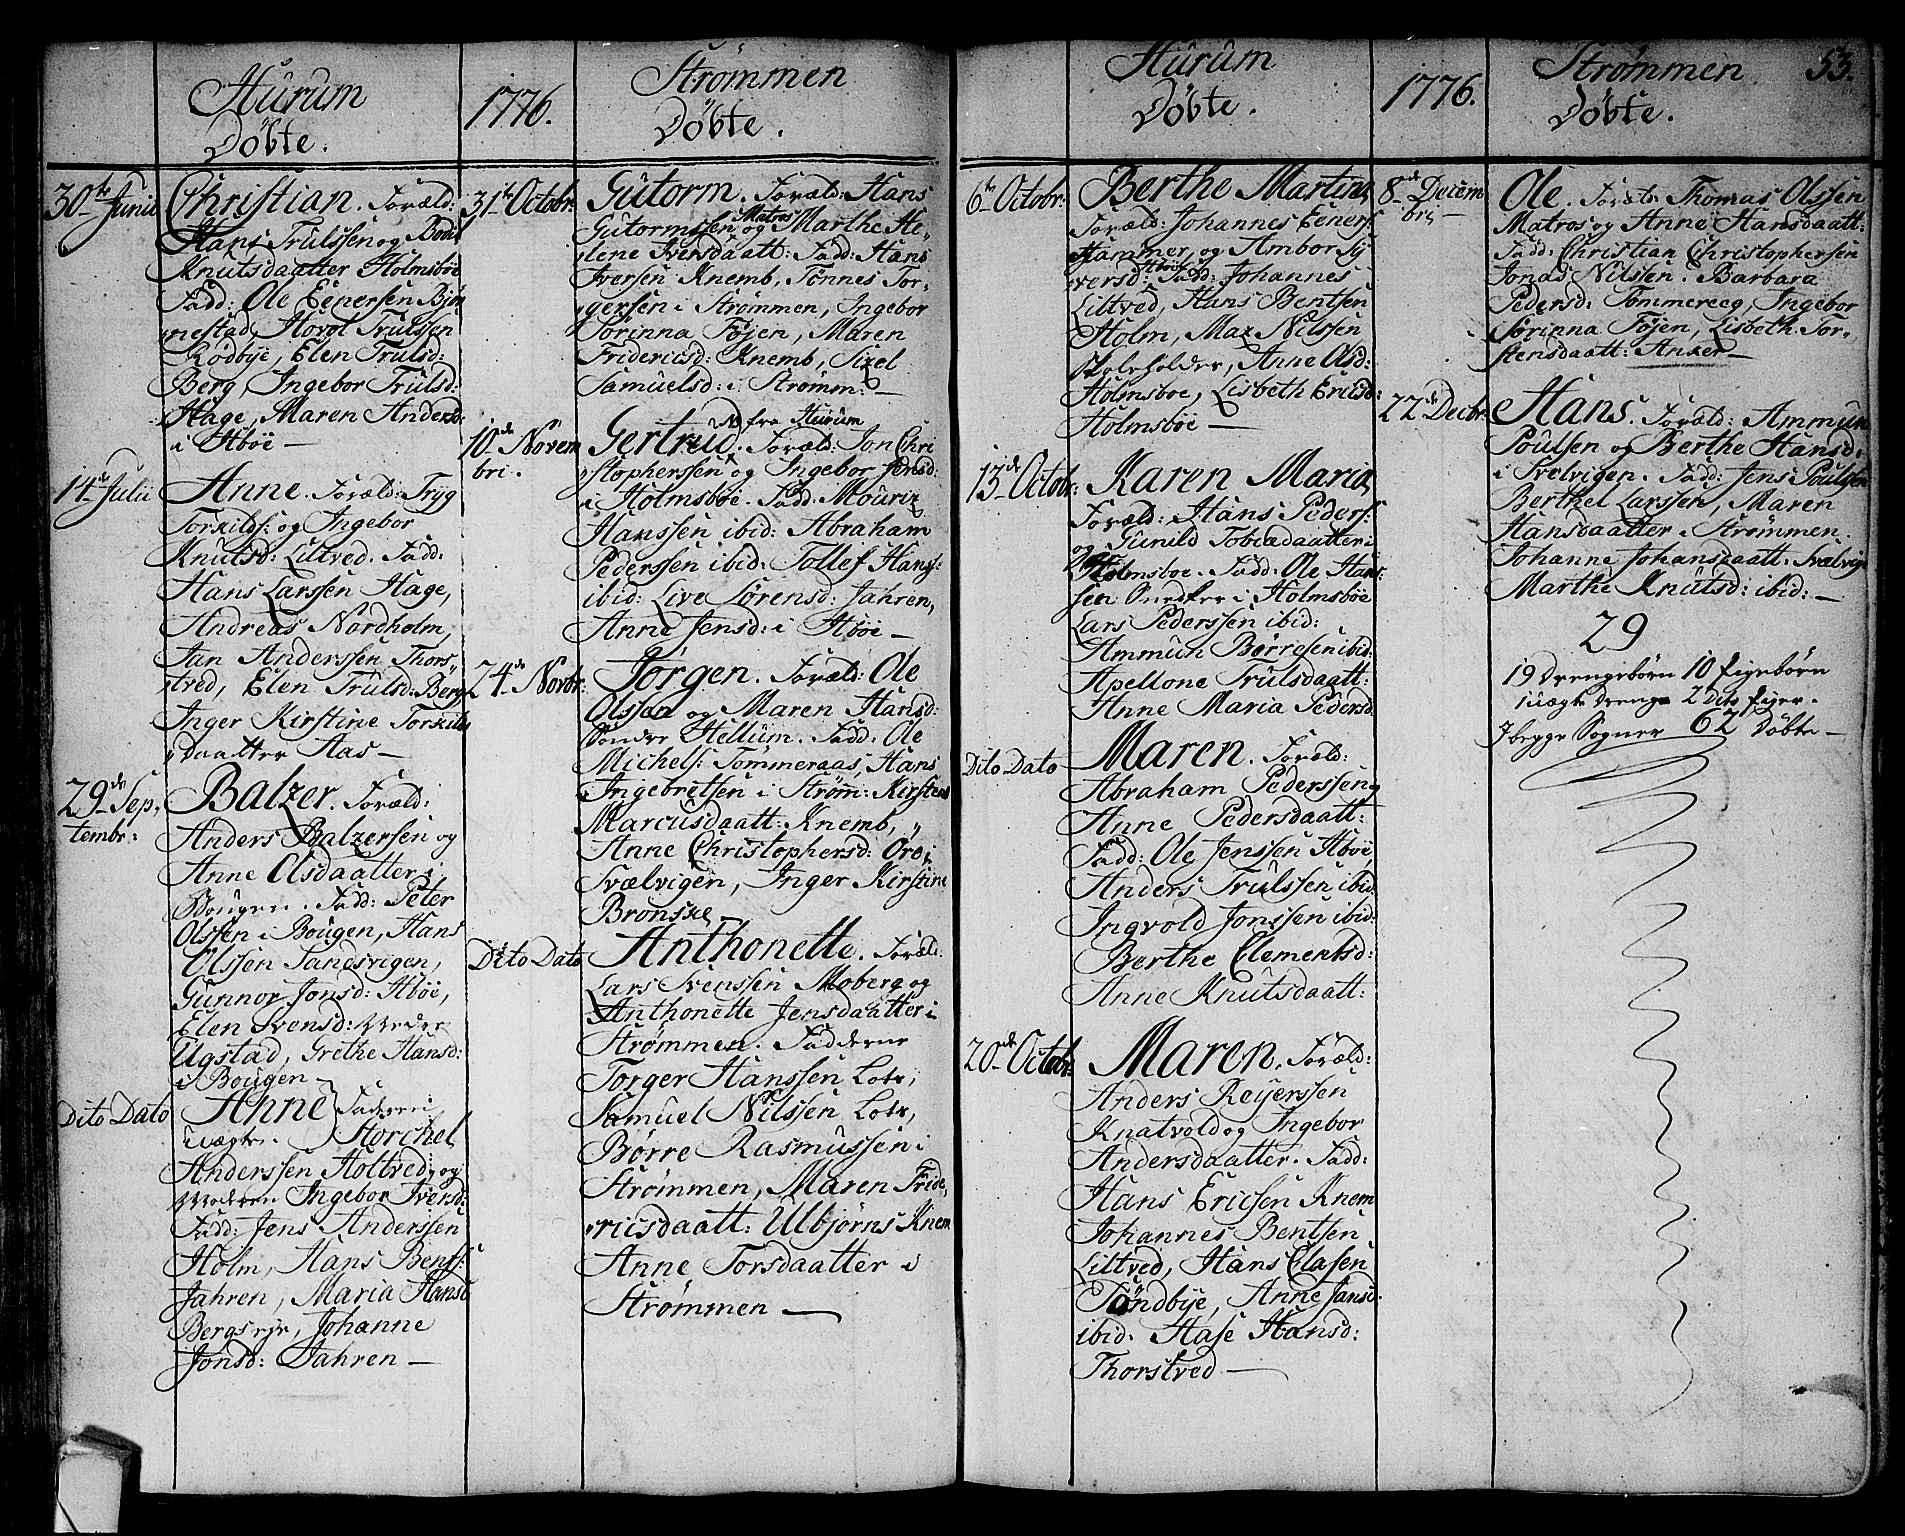 Hurum
Døbte.
30te Junii
Christian. Foræld:
Hans Trulssen og Bodil
Knutsdaatter Holmsbøe
Fadd: Ole Eenersen Bjør
nestad, Hovol Trulssen
Rødbye, Elen Trulsd:
Berg, Ingebor Trulsd:
Hage, Maren Andersd:
i Støe —
14de Julii
Anne. Foræld: Tryg
Torkilds: og Ingebor
Knutsd: Liltved. Fadd:
Hans Larssen Hage,
Andreas Nordholm,
Jan Anderssen Thors-
tved, Elen Trulsd: Berg
Inger Kirstine Torkilds
daatter Aas —
29de Sep,
tembr:
Balzer. Foræld:
Anders Balzersen og
Anne Olsdaatter i
Bougen. Fadd: Peter
Olssen i Bougen, Hans
Olssen Sandvigen,
Gunnor Jonsd: Støe,
Elen Svensd: Neder
Ugstad, Grethe Hansd:
i Bougen —
Dito Dato
Anne
uægte.
Faderen
Storchel
Anderssen Holtved, og
Moderen Ingebor Iversd:
Fadd: Jens Anderssen
Holm, Hans Bents:
Jahren, Maria Hansd
Bergseje, Johanne
Jonsd: Jahren —
1776.
Strømmen
Døbte.
31te Octobr:
Gutorm. Foræld: Hans
Gutormssen Matros og Marthe He-
lene Iversdaatt: Fadd: Hans
Iversen Knemb, Tønnes Tor-
gersen i Strømmen, Ingebor
Torinna Føjen, Maren
Fridericsd: Knemb, Sizel
Samuelsd: i Strømm: —
10de Novem
bri.
Gertrud NB fra Hurum. Foræld: Jon Chri
stopherssen og Ingebor Jensd:
i Holmsbøe. Fadd: Mouriz
Hanssen ibid: Abraham
Pederssen ibid: Tollef Hans:
ibid: Live Sørensd: Jahren,
Anne Jensd: i Støe —
24de Novbr:
Jørgen. Foræld: Ole
Olssen og Maren Hansd:
Søndre Hellum. Fadd: Ole
Michels: Tømmeraas, Hans
Ingebretsen i Strøm: Kirsten
Marcusdaatt: Knemb,
Anne Christophersd: Ore i
Svælvigen, Inger Kirstine
Brønske
Dito Dato
Anthonette. Foræld:
Lars Svenssen Moberg og
Anthonette Jensdaatter i
Strømmen. Fadderne
Torger Hanssen Lots,
Samuel Nilssen Lots,
Børre Rasmussen i
Strømmen, Maren Fride-
ricsdaatt: Ulbjørns Knem
Anne Torsdaatter i
Strømmen —
Hurum
Døbte.
6te Octobr:
Berthe Martina,
Foræld: Johannes Eeners:
Hammer, og Ambor Sy
versd: Støe Fadd: Johannes
Liltved, Hans Bentsen
Holm, Maz Nilssen
Skoleholder, Anne Olsd:
Holmsboe, Lisbeth Ericsd:
Holmsbøe —
13de Octobr:
Karen Maria,
Foræld: Hans Peders:
og Gunild Tobiadaatter i
Holmsboe. Fadd: Ole Hans-
sen i Holmsbøe
Lars Pederssen ibid:
Ammun Børresen ibid:
Apellone Trulsdaatt:
Anne Maria Pedersd
Dito Dato
Maren. Foræld:
Abraham Pederssen og
Anne Pedersdaatt:
Fadd: Ole Jenssen Støe,
Anders Trulssen ibid:
Ingvold Jonssen ibid:
Berthe Clementsd:
Anne Knutsdaatt:
20de Octobr:
Maren. Foræld:
Anders Reyerssen
Knatvold og Ingebor
Andersdaatter. Fadd:
Hans Ericsen Knem
Johannes Bentsen
Liltved, Hans Clasen
Tøndbye, Anne Jansd:
ibid. Aase Hansd:
Thorstved —
1776.
Strømmen
Døbte.
53.
8de Decem
bris
Ole. Foræld: Thomas Olssen
Matros og Anne Hansdaatt:
Fadd: Christian Christophersen
Jonas Nilssen. Barbara
Pedersd: Tømmereeg, Ingebor
Torinna Føjen, Lisbeth Tor-
stensdaatt: Anker —
22de Decbr:
Hans. Foræld: Ammun
Poulsen og Berthe Hansd:
i Svelvigen. Fadd: Jens Poulsen
Berthel Larssen, Maren
Hansdaatter i Strømmen.
Johanne Johansdaatt: Svælvig
Marthe Knutsd: ibid: —
29
19 Drengebørn 10 Pigebørn
1 uægte Drenge 2 Dito Piger.
I begge Sogner 62 Døbte —